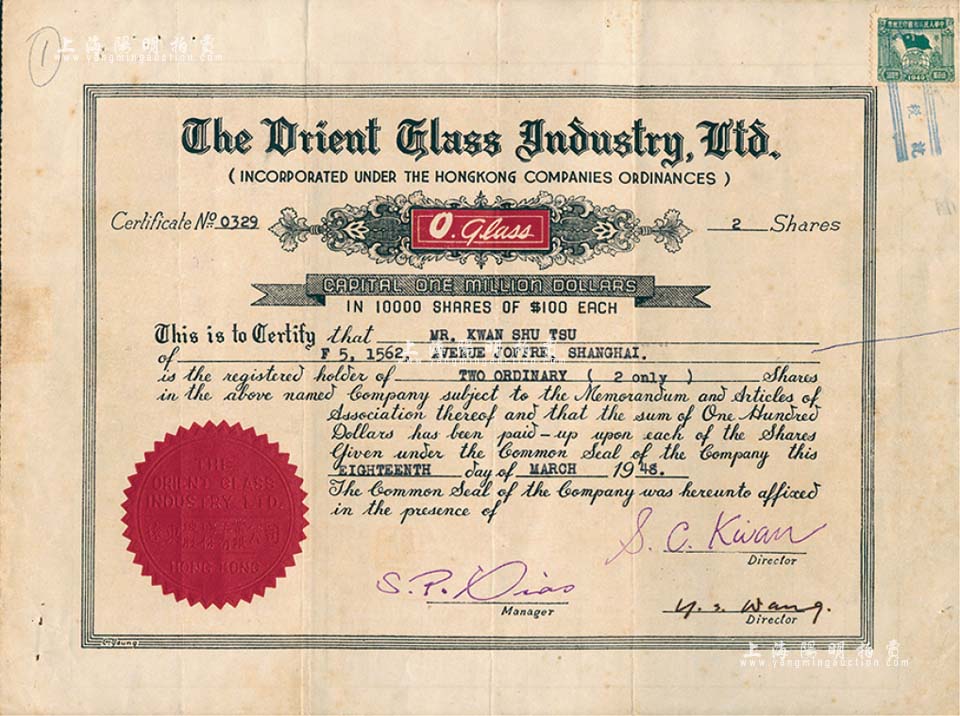 1
上海陽明拍賣
www.yangmingauction.com
中華人民共和國印花稅票
1949
The Orient Glass Industry, Ltd.
(INCORPORATED UNDER THE HONGKONG COMPANIES ORDINANCES)
Certificate No 0329
O. Glass
2 Shares
CAPITAL ONE MILLION DOLLARS
IN 10000 SHARES OF $100 EACH
This is to Certify that MR. KWAN SHU TSU
of F 5, 1562, AVENUE JOFFRE, SHANGHAI.
is the registered holder of TWO ORDINARY ( 2 only ) Shares
in the above named Company subject to the Memorandum and Articles of
Association thereof and that the sum of One Hundred
Dollars has been paid-up upon each of the Shares
Given under the Common Seal of the Company this
EIGHTEENTH day of MARCH 1948.
The Common Seal of the Company was hereunto affixed
in the presence of
THE
ORIENT GLASS
INDUSTRY LTD.
HONG KONG
S. C. Kwan
Director
S. P.
Manager
Y. S. Wang.
Director
上海陽明拍賣
www.yangmingauction.com